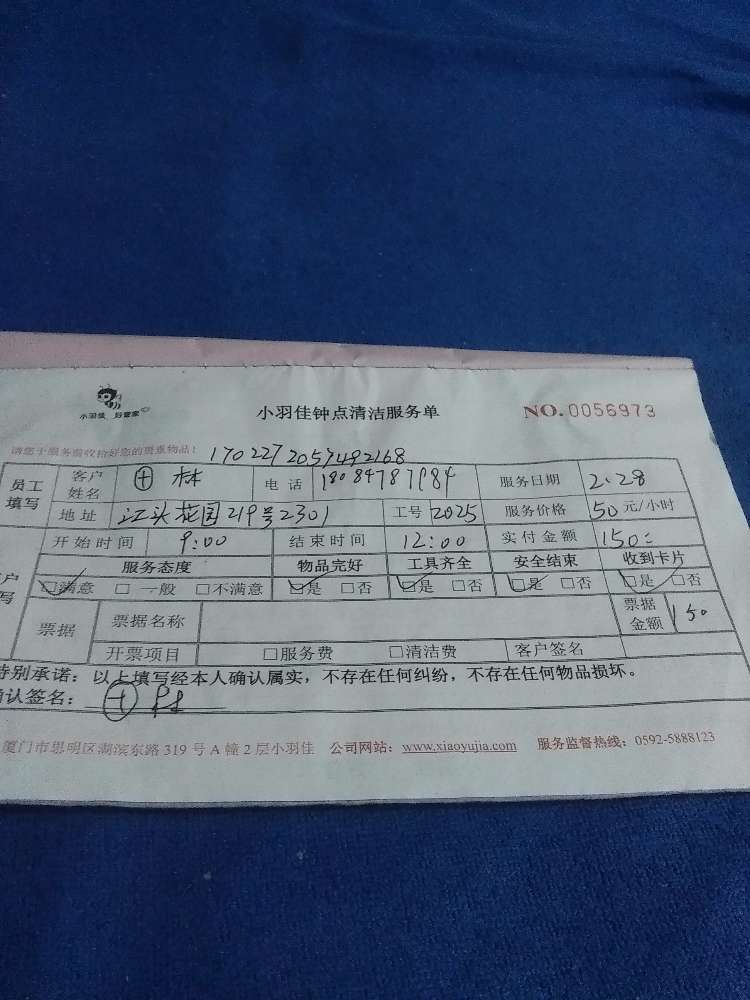 小羽佳 好管家
小羽佳钟点清洁服务单 NO.0056973
请您于服务前收拾好您的贵重物品! 1702272057492168
员工填写 客户姓名 林 电话 服务日期 2.28
地址 江头花园219号2301 工号 2025 服务价格 50元/小时
开始时间 9:00 结束时间 12:00 实付金额 150
服务态度 物品完好 工具齐全 安全结束 收到卡片
☑满意 □一般 □不满意 ☑是 □否 ☑是 □否 ☑是 □否 ☑是 □否
票据 票据名称 票据金额 150
开票项目 □服务费 □清洁费 客户签名
特别承诺:以上填写经本人确认属实,不存在任何纠纷,不存在任何物品损坏。
确认签名:
厦门市思明区湖滨东路319号A幢2层小羽佳 公司网站:www.xiaoyujia.com 服务监督热线:0592-5888123